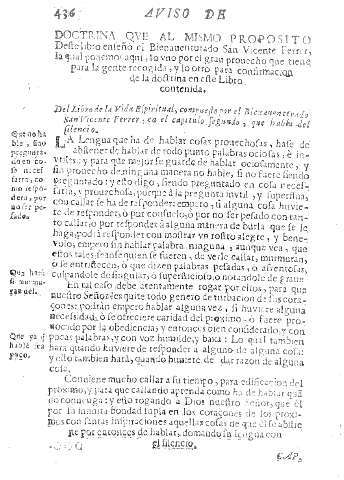 436 AVISO DE
DOCTRINA QUE AL MISMO PROPOSITO
Deste libro enseñò el Bienauenturado San Vicente Ferrer,
la qual ponemos aqui, lo vno por el gran prouecho que tiene
para la gente recogida, y lo otro para confirmacion
de la dostrina en este Libro
contenida.
Del Libro de la Vida Espiritual, compuesto por el Bienauenturado
San Vicente Ferrer, en el capitulo segundo, que habla del
silencio.
Que no hable, sino
LA Lengua que ha de hablar cosas prouechosas, hase de
abstener de hablar de todo punto palabras ociosas, è in
vtiles: y para que mejor se guarde de hablar ociosamente, y
sin prouecho de ninguna manera no hable, si no fuere siendo
preguntado: y esto digo, siendo preguntado en cosa neces
saria, y prouechosa, porque à la pregunta inutil, y superflua,
con callar se ha de responder: empero, si alguna cosa huvie
re de responder, ò por consuelo, ò por no ser pesado con tan
to callar, ò por responder à alguna manera de burla que se le
haga, podrà responder con mostrar vn rostro alegre, y bene-
volo, empero sin hablar palabra ninguna, aunque vea, que
otros tales, se ansen quien se fueren, de verle callar, murmuran,
ò se entristecen, ò que dizen palabras pesadas, ò afrentosas,
culpandole de singular, ò supersticioso, ò notandole de graue
Que harà si murmuran del.
En tal caso debe atentamente rogar por ellos, para que
nuestro Señor les quite todo genero de turbacion de sus cora-
çones: podràn empero hablar alguna vez, si huviere alguna
necessidad, ò se ofreciere caridad del proximo, ò fuere pro-
uocado por la obediencia, y entonces bien considerado, y con
pocas palabras, y con voz humilde, y baxa: Lo qual tambien
Que ya q hable sea poco.
harà quando huviere de responder à alguno de alguna cosa:
y esto tambien harà, quando huviere de dar razon de alguna
cosa.
Conviene mucho callar a su tiempo, para edificacion del
proximo, y para que callando aprenda como ha de hablar quã
do convenga: y esto rogando à Dios nuestro Señor, que èl
por su infinita bondad supla en los coraçones de los proxi-
mos con santas inspiraciones aquellas cosas que el se abstie
ne por entonces de hablar, domando su lengua con
el silencio.
CAP.